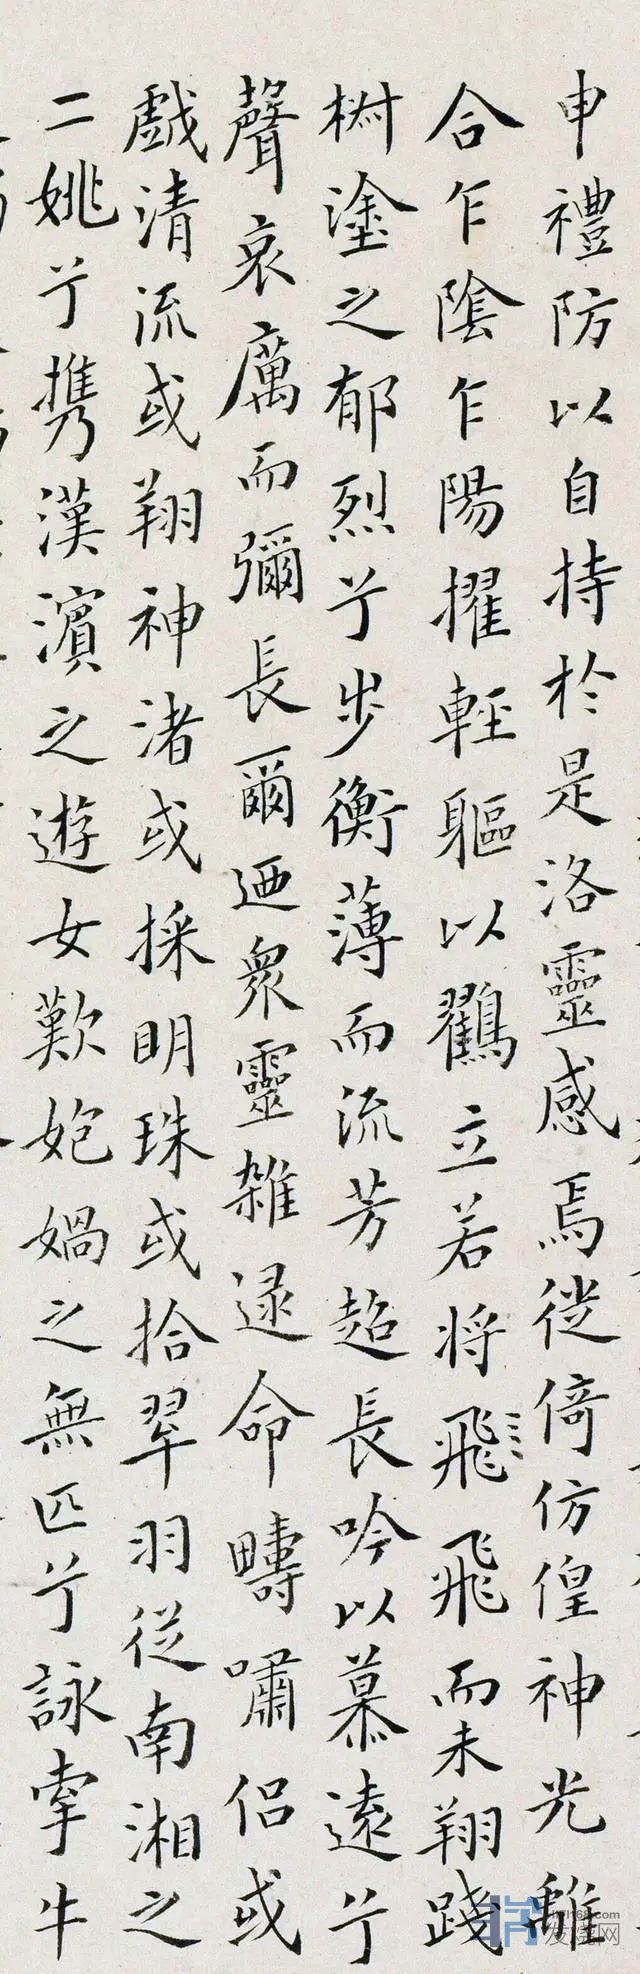 申禮防以自持於是洛靈感焉徙倚仿偟神光離
合乍陰乍陽擢輕軀以鶴立若將飛飛而未翔踐
樹塗之郁烈兮步衡薄而流芳超長吟以慕遠兮
聲哀厲而彌長爾迺眾靈雜遝命疇嘯侶或
戲清流或翔神渚或採明珠或拾翠羽從南湘之
二姚兮攜漢濱之遊女歎匏媧之無匹兮詠牽牛
发烧网